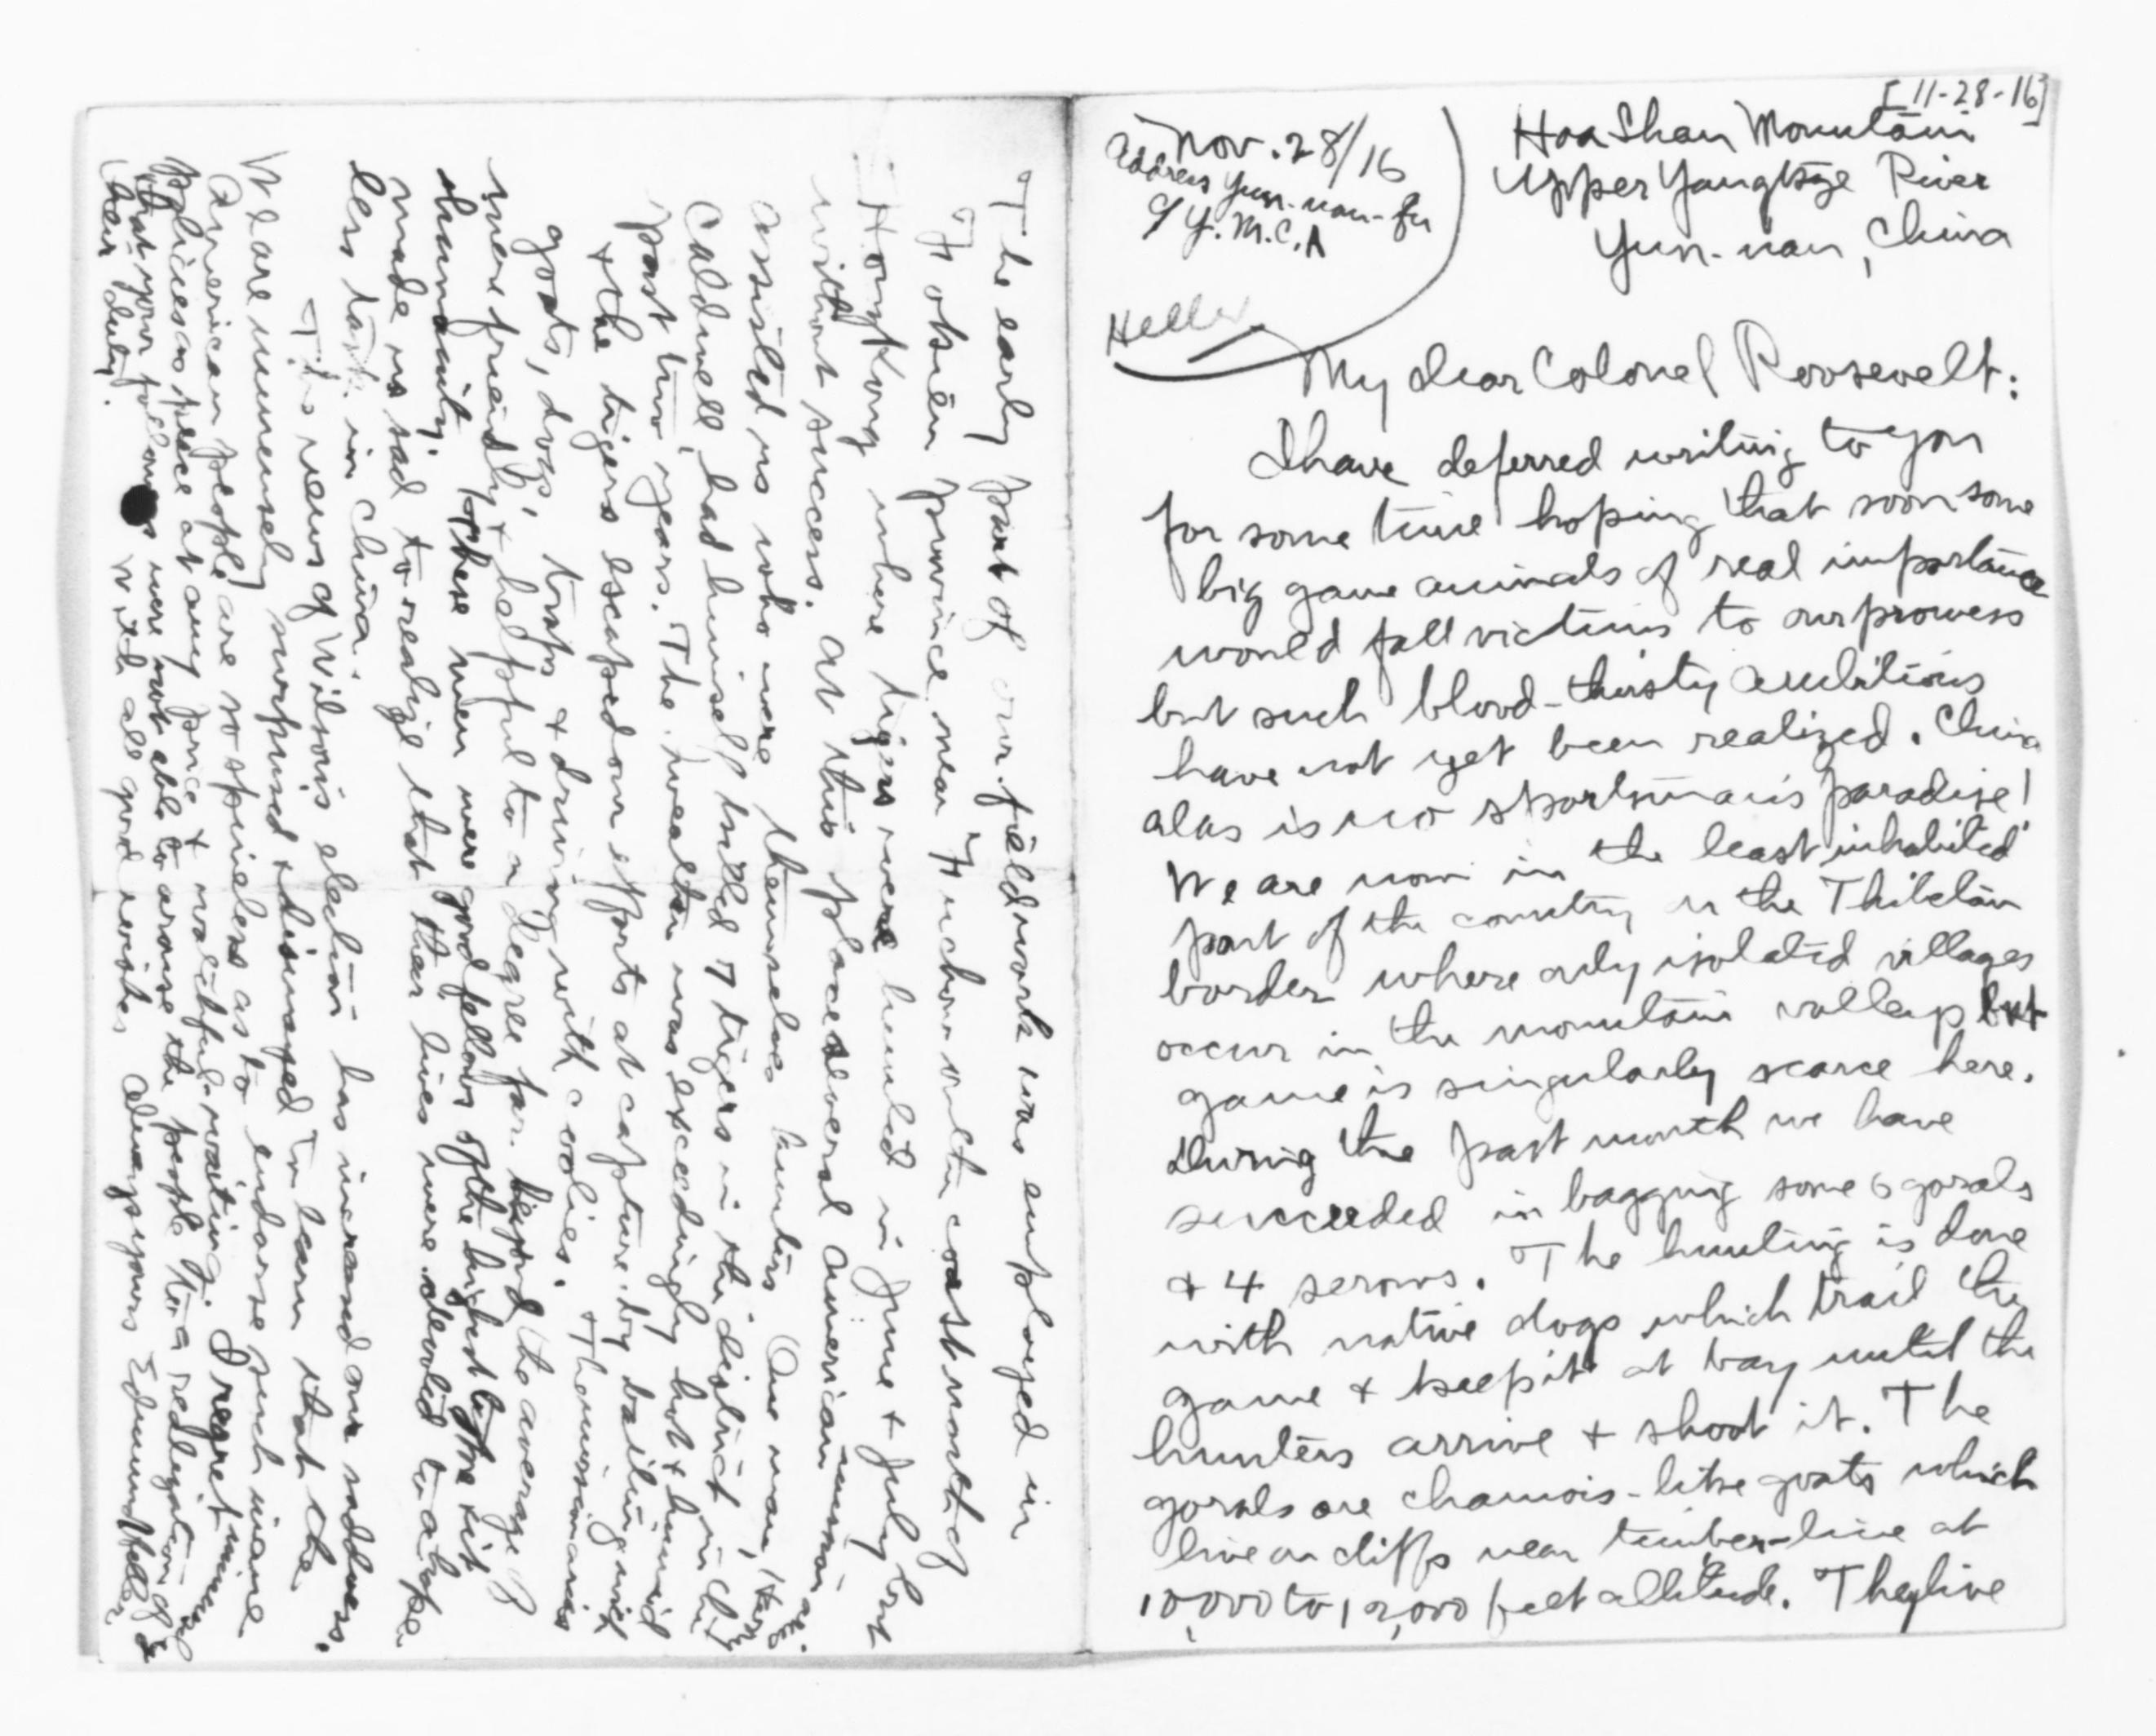 [11-28-16]
Nov. 28/16
Address Yun-nan-fu
% Y.M.C.A
Heller
Haa Shan Mountain
Upper Yangtsze River
Yun-nan, China
My dear Colonel Roosevelt:
I have deferred writing to you
for some time hoping that soon some
big game animals of real importance
would fall victims to our prowess
but such blood-thirsty ambitions
have not yet been realized. China
alas is no sportsman's paradise!
We are now in the least inhabited
part of the country on the Thibetan
border where only isolated villages
occur in the mountain valleys but
game is singularly scarce here.
During the past month we have
succeeded in bagging some 6 gorals
+ 4 serows. The hunting is done
with native dogs which trail the
game + keep it at bay until the
hunters arrive + shoot it. The
gorals are chamois-like goats which
live on cliffs near timber-line at
10,000 to 12,000 feet altitude. They live
The early part of our field work was employed in
Fohsien province near Fuchow on the coast north of
Hongkong where tigers were hunted in June + July but
without success. At this place several American missionaries
assisted us who were themselves hunters. One man, Harry
Caldwell, had himself killed 7 tigers in the district in the
past two years. The weather was exceedingly hot + humid
+ the tigers escaped our efforts at capture by baiting with
goats, dogs, traps + driving with coolies. The missionaries
were friendly + helpful to a degree far beyond the average of
humanity. These men were good fellows of the highest type it
made us sad to realize that their lives were devoted to a hope
less task in China.
This news of Wilson's election has increased our sadness.
We are immensely surprised + disimayed to learn that the
American people are so spineless as to endorse such inane
policies as peace at any price + watchful-waiting. I regret
that your followers were not able to arouse the people to a realization of
their duty. With all good wishes, Always yours Edmund Heller